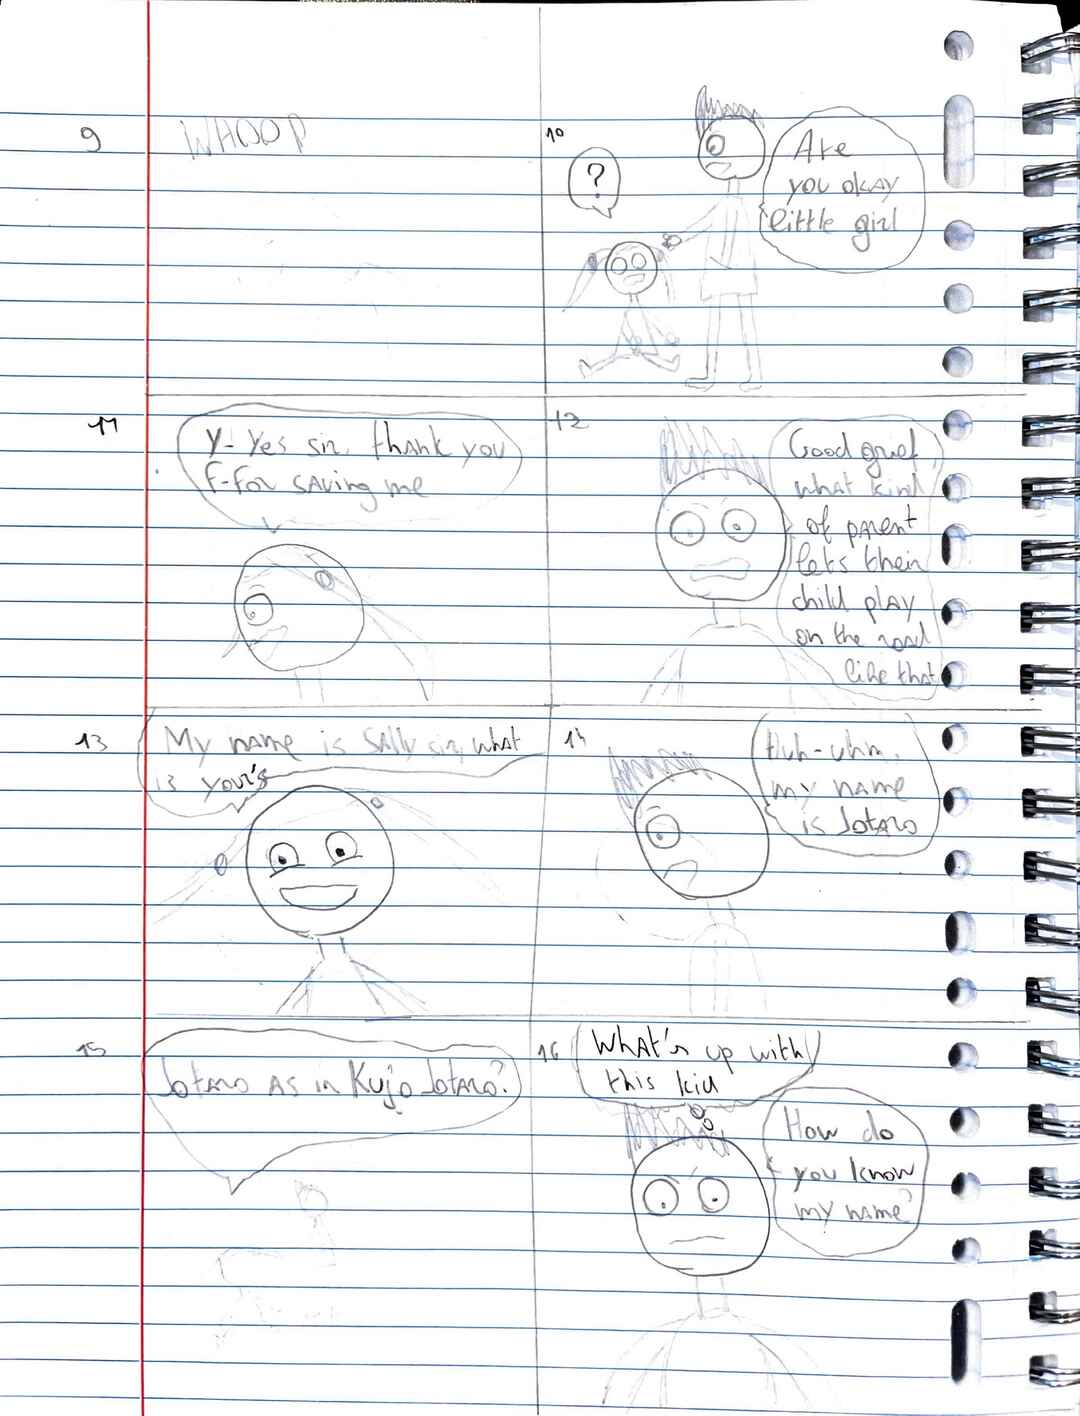 9
WHOOP
10
?
Are
you okay
little girl
11
Y-Yes sir, thank you
F-For saving me
12
Good grief,
what kind
of parent
lets their
child play
on the road
like that
13
My name is Sally sir, what
is your's
14
Huh-uhm,
my name
is Jotaro
15
Jotaro as in Kujo Jotaro?
16
What's up with
this kid
How do
you know
my name?